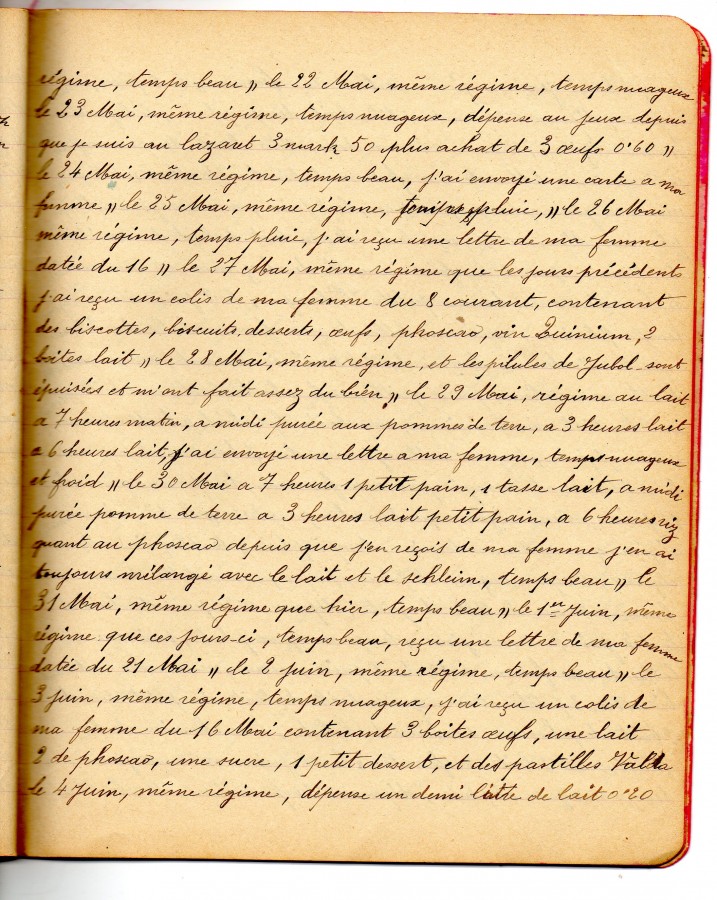 régime, temps beau " le 22 Mai, même régime, temps nuageux
le 23 Mai, même régime, temps nuageux, dépense au jeux depuis
que je suis au lazaret 3 mark 50 plus achat de 3 œufs 0.60 "
le 24 Mai, même régime, temps beau, j'ai envoyé une carte a ma
femme " le 25 Mai, même régime, temps pluie, " le 26 Mai
même régime, temps pluie, j'ai reçu une lettre de ma femme
datée du 16 " le 27 Mai, même régime que les jours précédents
j'ai reçu un colis de ma femme du 8 courant, contenant
des biscottes, biscuits, desserts, œufs, phoscao, vin Quinium, 2
boites lait " le 28 Mai, même régime, et les pilules de Jubol sont
épuisées et m'ont fait assez du bien " le 29 Mai, régime au lait
a 7 heures matin, a midi purée aux pommes de terre, a 3 heures lait
a 6 heures lait, j'ai envoyé une lettre a ma femme, temps nuageux
et froid " le 30 Mai a 7 heures 1 petit pain, 1 tasse lait, a midi
purée pomme de terre a 3 heures lait petit pain, a 6 heures riz
quant au phoscao depuis que j'en reçois de ma femme j'en ai
toujours mélangé avec le lait et le schleim, temps beau " le
31 Mai, même régime que hier, temps beau " le 1er Juin, même
régime que ces jours-ci, temps beau, reçu une lettre de ma femme
datée du 21 Mai " le 2 juin, même régime, temps beau " le
3 juin, même régime, temps nuageux, j'ai reçu un colis de
ma femme du 16 Mai contenant 3 boites œufs, une lait
2 de phoscao, une sucre, 1 petit dessert, et des pastilles Valda
le 4 Juin, même régime, dépense un demi litre de lait 0.20